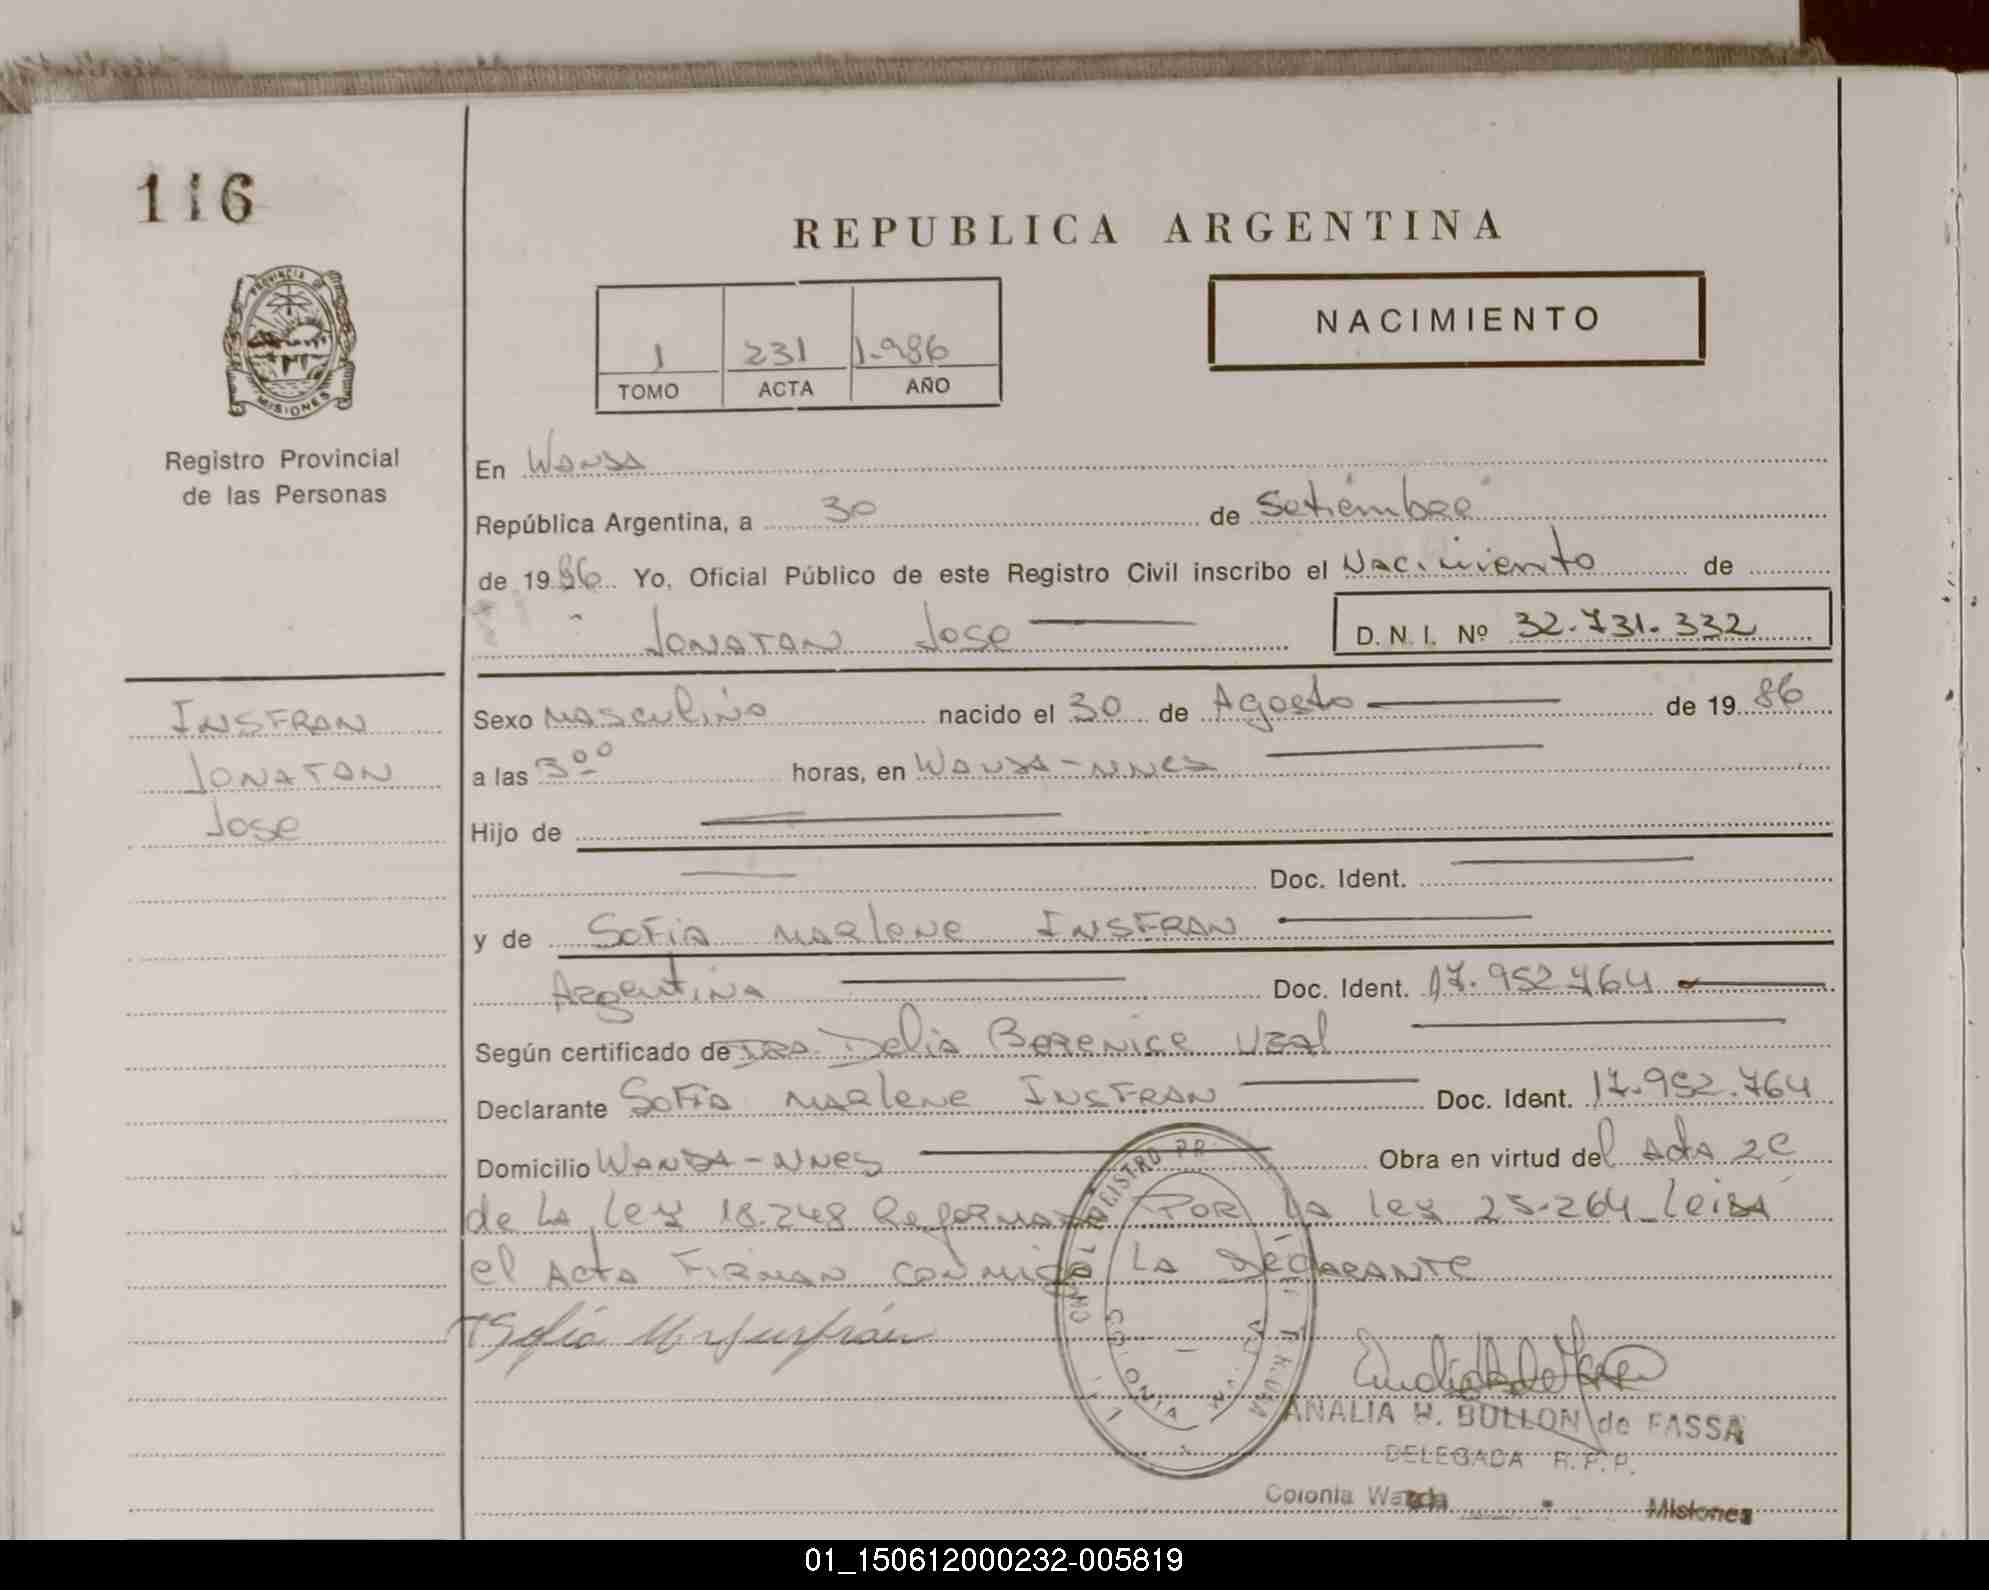 116
REPUBLICA ARGENTINA
PROVINCIA DE
MISIONES
Registro Provincial
de las Personas
1 231 1.986
TOMO ACTA AÑO
NACIMIENTO
En Wanda
República Argentina, a 30 de Setiembre
de 1986 Yo, Oficial Público de este Registro Civil inscribo el Nacimiento de
JONATAN Jose D. N. I. Nº 32.731.332
INSFRAN
JONATAN
Jose
Sexo masculino nacido el 30 de Agosto de 19 86
a las 3°° horas, en Wanda-
Hijo de
Doc. Ident.
y de SOFIA MARLENE INSFRAN
Argentina Doc. Ident. 17.952.764
Según certificado de DRA. Delia BERENICE UZAL
Declarante SOFIA MARLENE INSFRAN Doc. Ident. 17.952.764
Domicilio WANDA- Obra en virtud del
de la ley 18.248 por la ley 23.264 leida
el Acta FIRMAN conmigo LA DECLARANTE
Sofia M Insfrán
ANALIA H. BULLON de FASSA
DELEGADA R.P.P.
Colonia Wanda Misiones
01_150612000232-005819